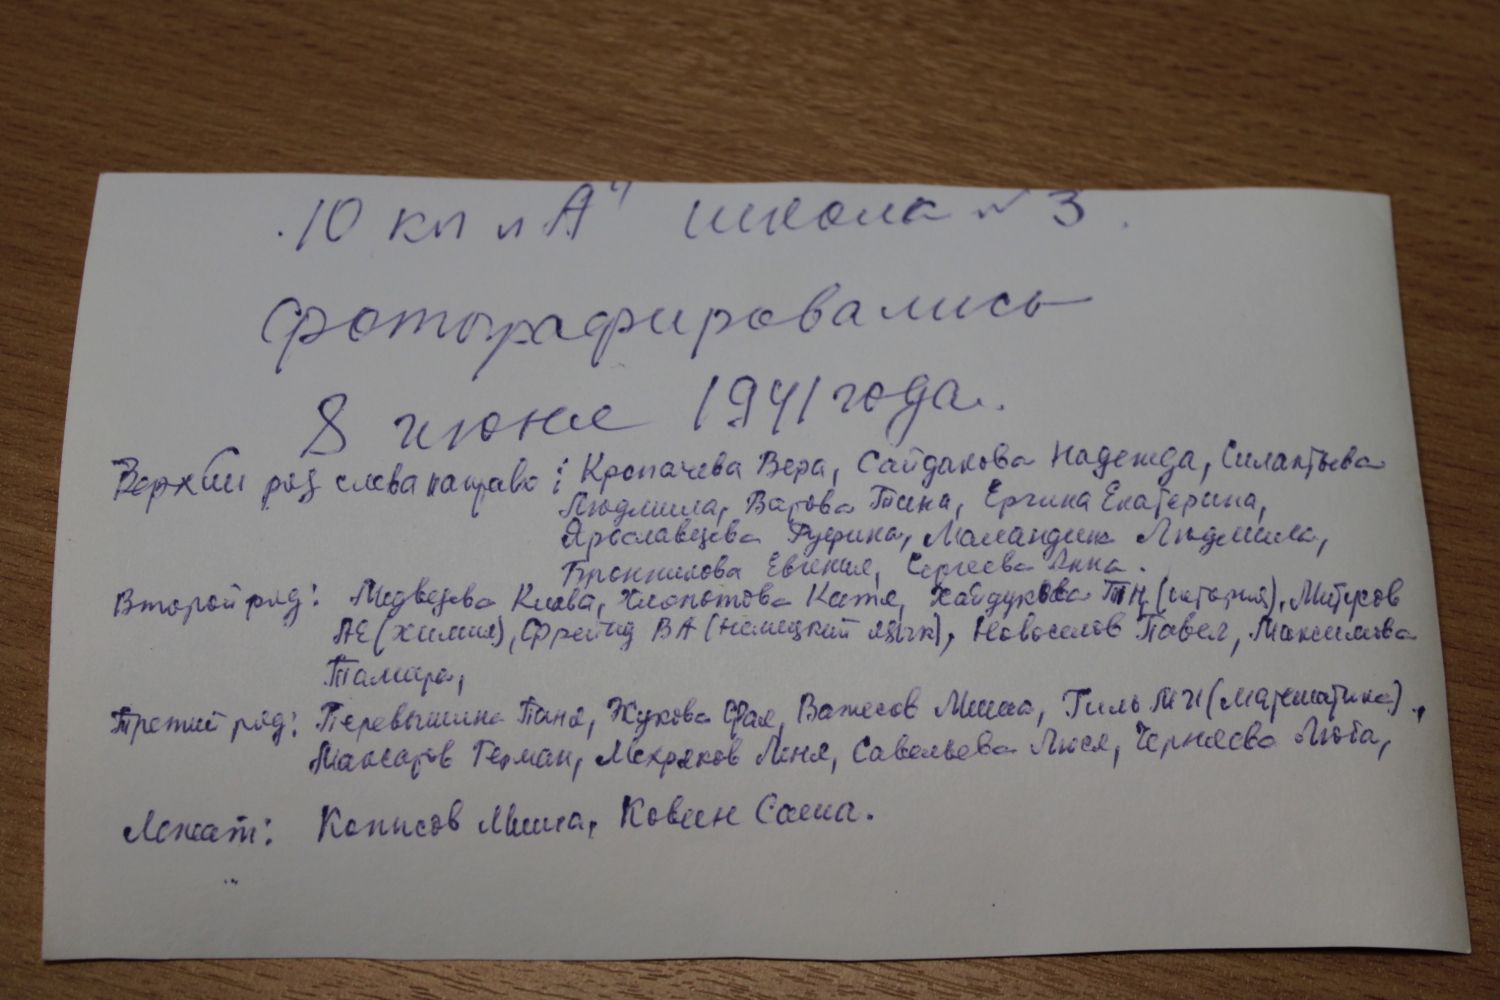 10 кл „А" школа № 3.
Фотографировались
8 июня 1941 года.
Верхний ряд слева направо: Кропачева Вера, Сайдакова Надежда, Силантьева
Людмила, Ватова Тина, Ергина Екатерина,
Ярославцева Руфина, Маландина Людмила,
Бронникова Евгения, Сергеева Анна.
Второй ряд: Медведева Клава, Хлопотова Катя, Хайдукова ТН (история), Митусов
АЕ (химия), Фрейнд ВА (немецкий язык), Новоселов Павел, Максимова
Тамара,
Третий ряд: Перевышина Таня, Жукова Фая, Вотесов Миша, Гиль МИ (математика).,
Макаров Герман, Мокряков Леня, Савельева Люся, Черняева Люба,
Лежат: Кописов Миша, Ковин Саша.